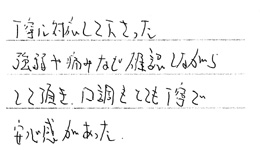 丁寧に対応して下さった
強弱や痛みなど確認しながら
して頂き、口調もとても丁寧で
安心感があった。